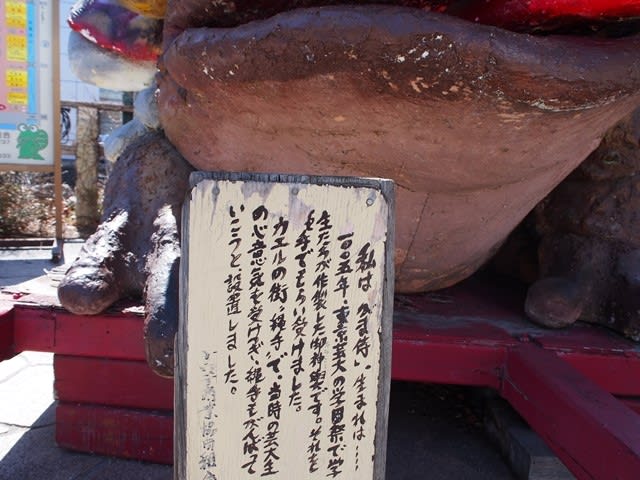 私は がま侍 生まれは……
二〇〇五年・東京芸大の学園祭で学
生たちが作製した御神輿です。それを
縄手でもらい受けました。
カエルの街〝縄手〟で、当時の芸大生
の心意気を受けつぎ、縄手もがんばって
いこうと設置しました。